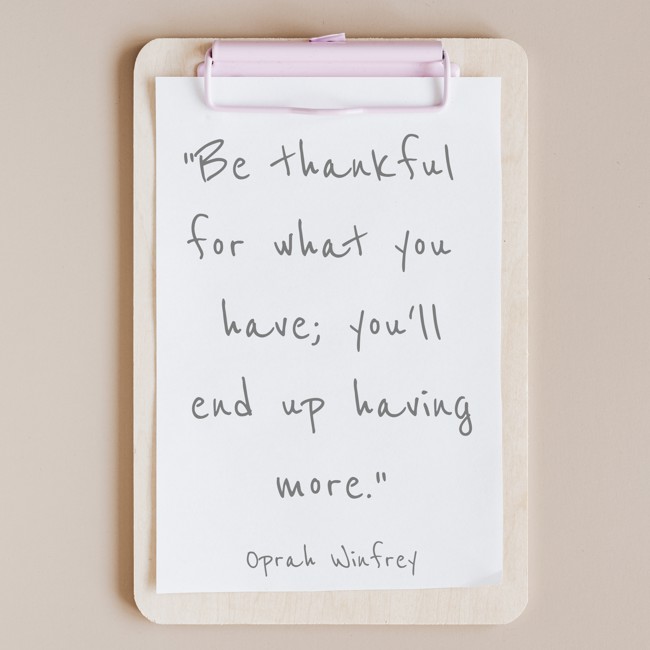 "Be thankful
for what you
have; you'll
end up having
more."
Oprah Winfrey